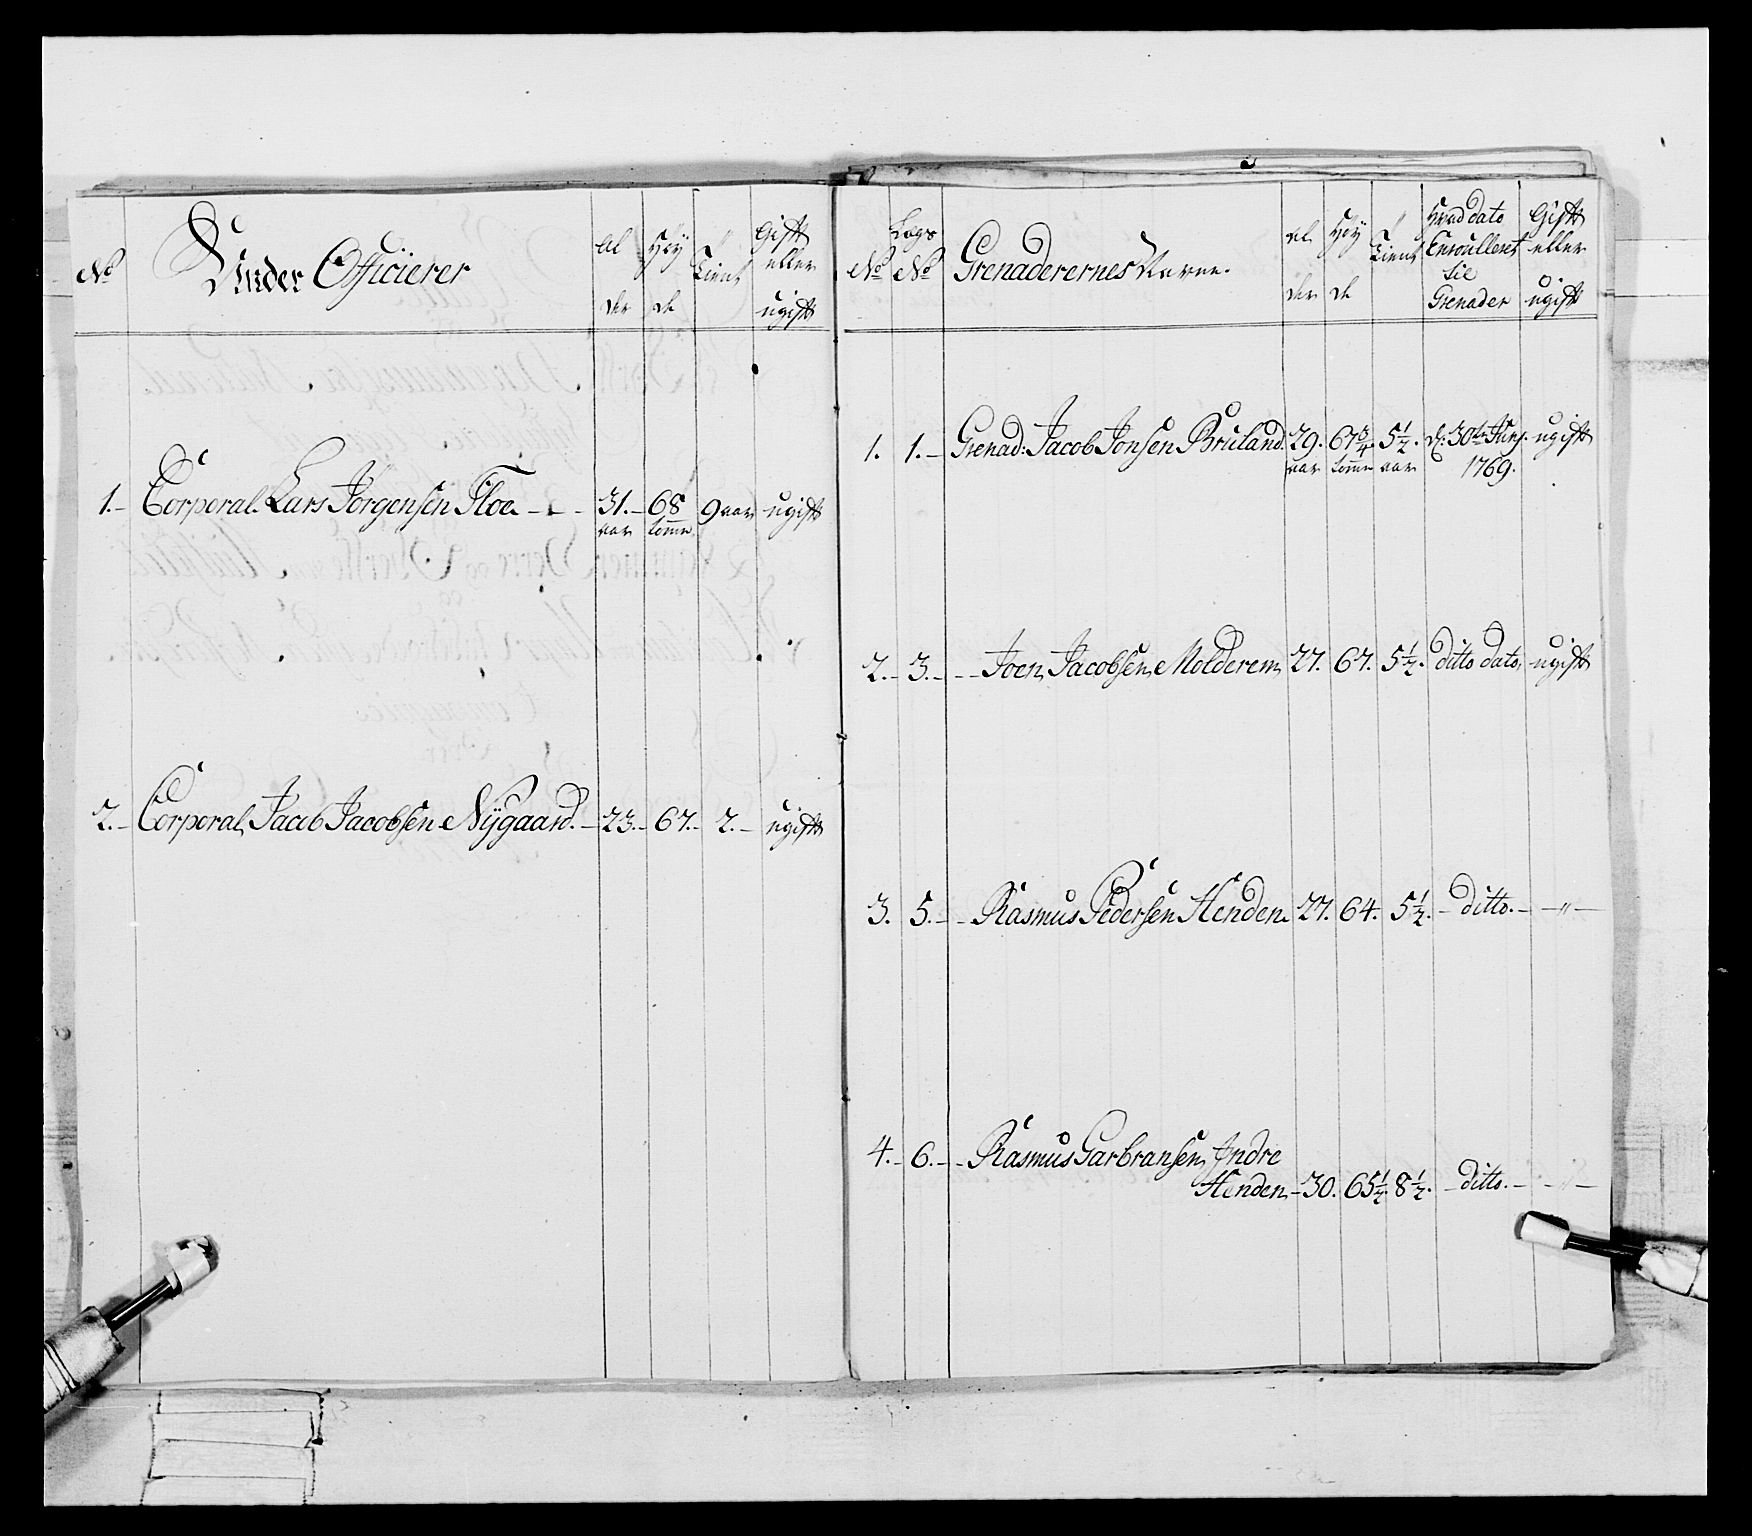 No
Under Officierer
Al
der
Høy
de
Tient
Gift
eller
ugift
1. Corporal. Lars Jørgensen Floe - - 31. 68 9 aar ugift
aar tomme
2. Corporal Jacob Jacobsen Nÿgaard. 23. 67. 2. ugift
No
Lægs
No
Grenaderernes Navne.
Al
der
Høy
de
Tient
Hvad dato
Enroulleret
til
Grenader
Gift
eller
ugift
1. 1. Grenad: Jacob Jonsen Bruland. 29. 67 3/4. 5 1/2. d: 30te Junj. ugift
aar tomme aar 1769.
2. 3. Joen Jacobsen Molderem 27. 67. 5 1/2. ditto dato. ugift
3. 5. Rasmus Pedersen Henden. 27. 64. 5 1/2. ditto. - " -
4. 6. Rasmus Garbransen Indre
Henden 30. 65 1/2. 8 1/2. ditto. - " -